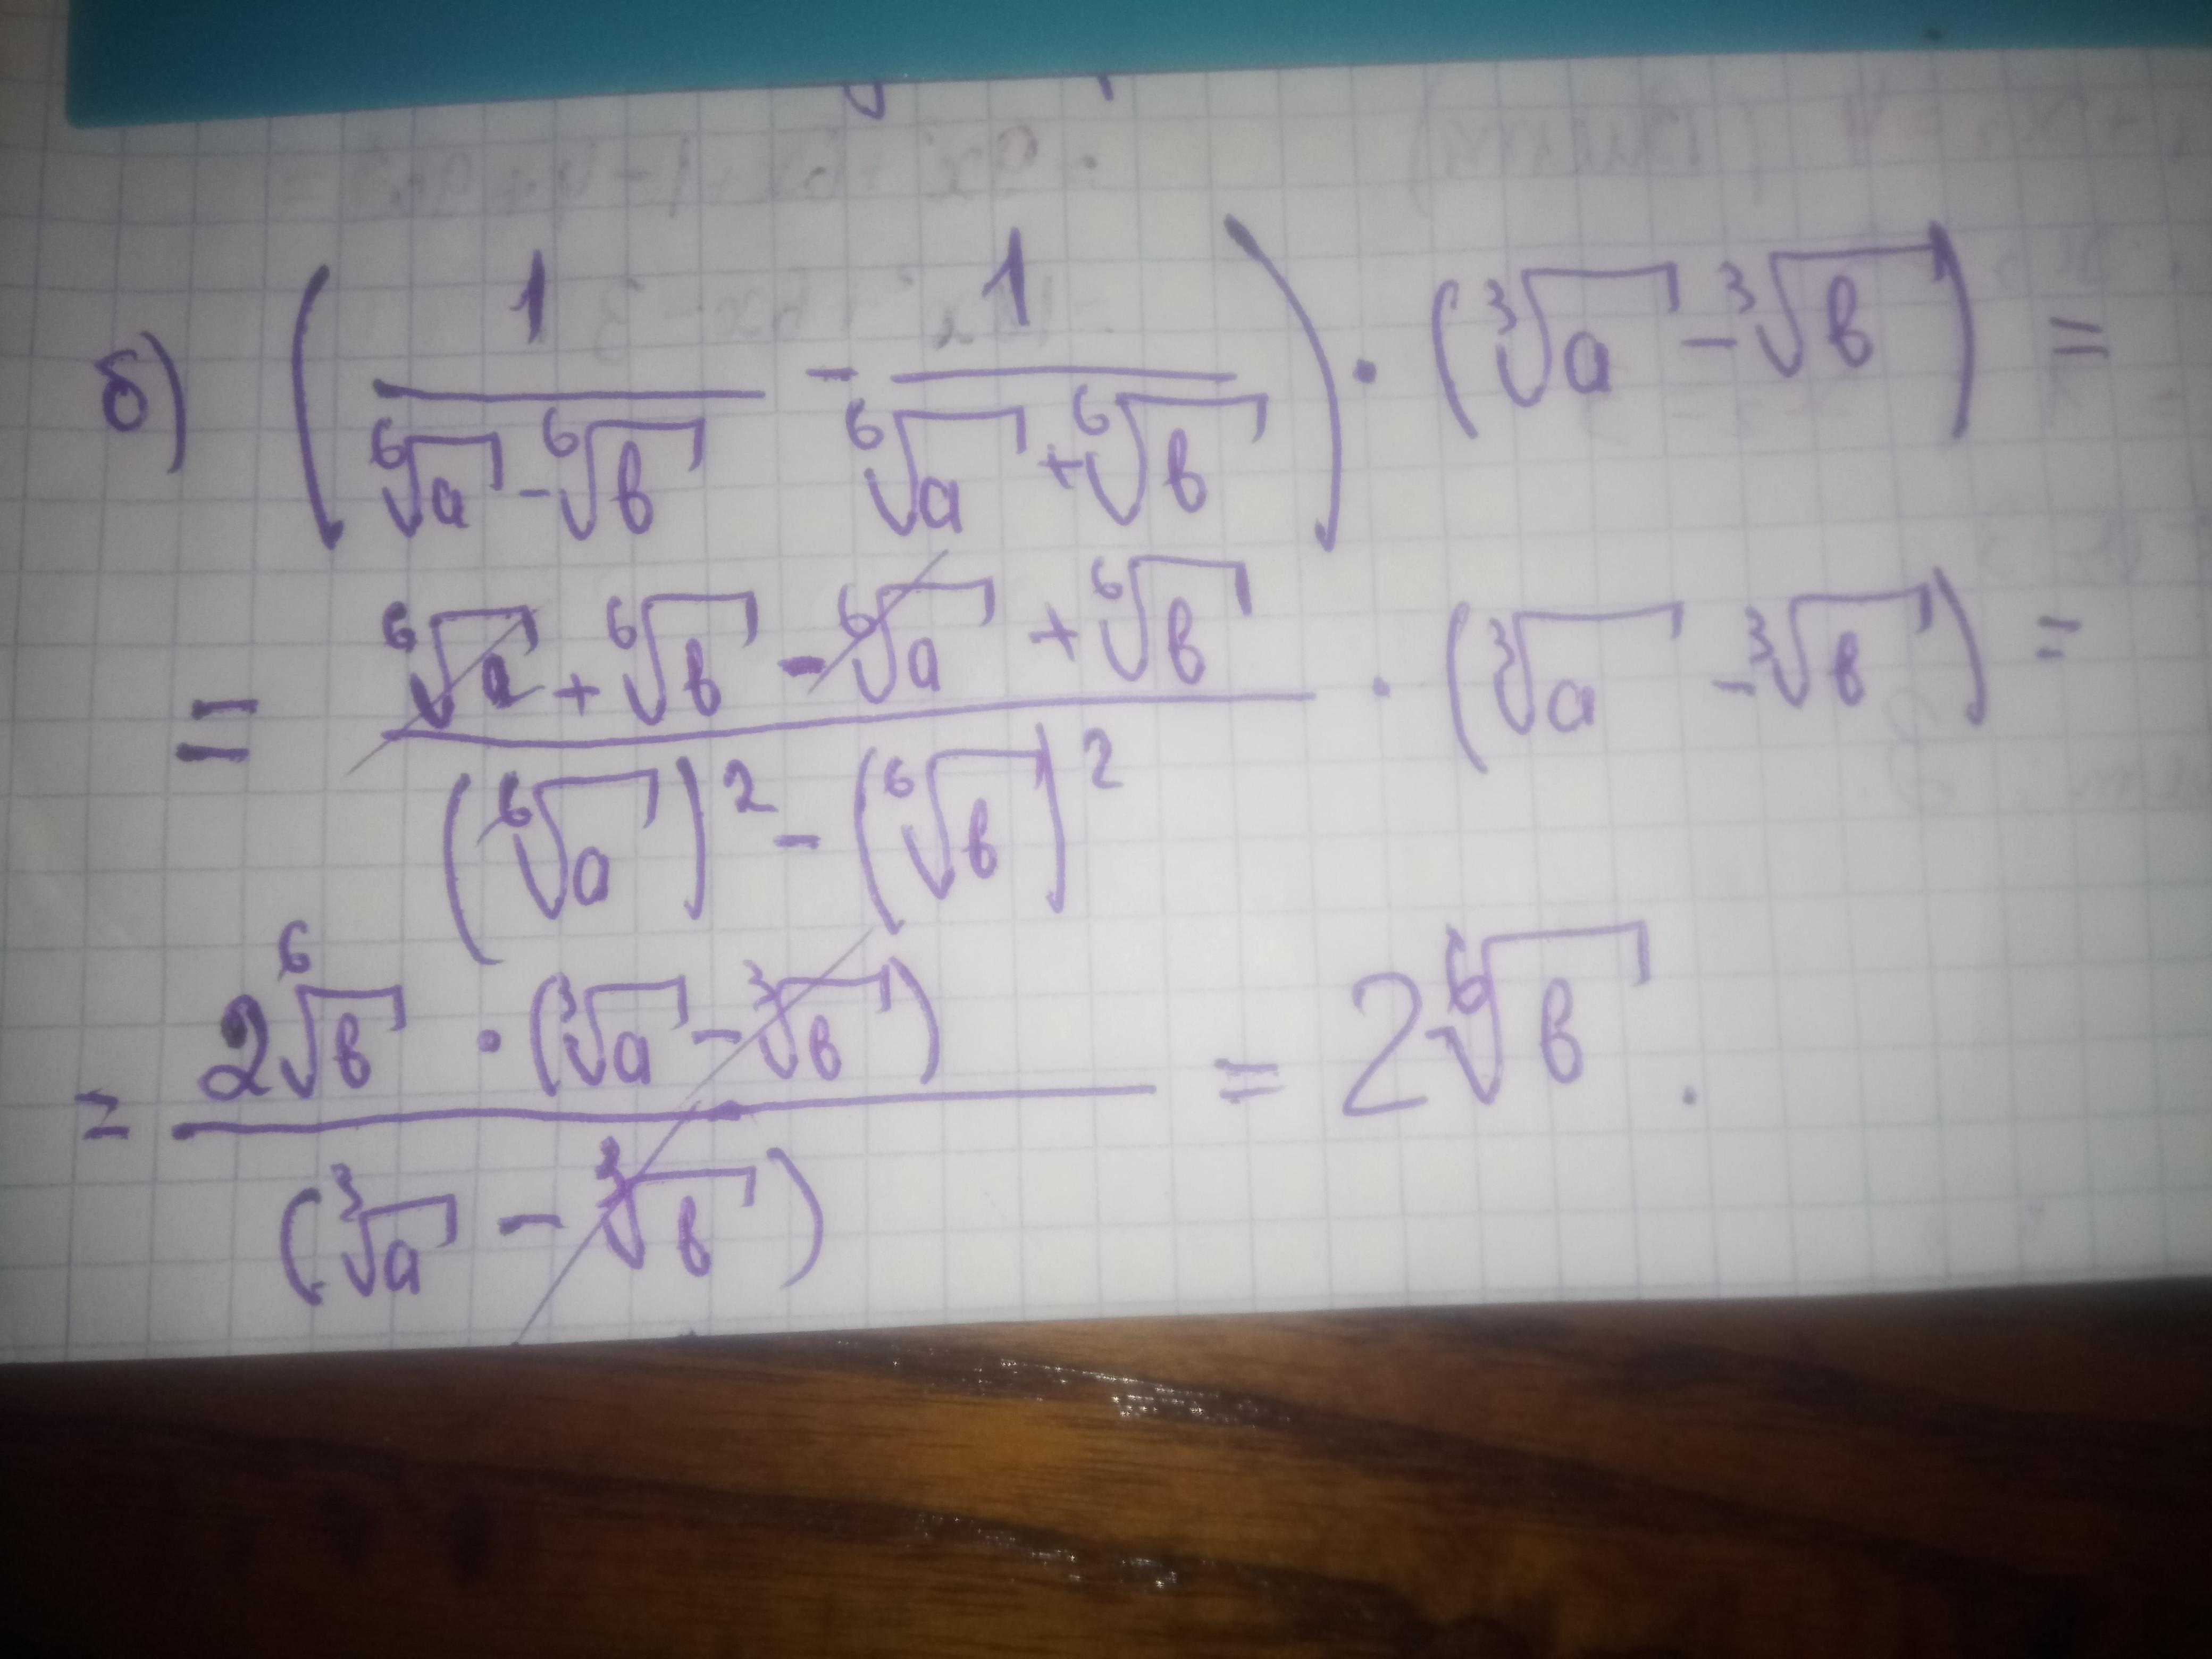 б) ( 1/(⁶√a - ⁶√b) - 1/(⁶√a + ⁶√b) ) · (³√a - ³√b) =
= (⁶√a + ⁶√b - ⁶√a + ⁶√b)/((⁶√a)² - (⁶√b)²) · (³√a - ³√b) =
= (2⁶√b · (³√a - ³√b))/((³√a - ³√b)) = 2⁶√b .